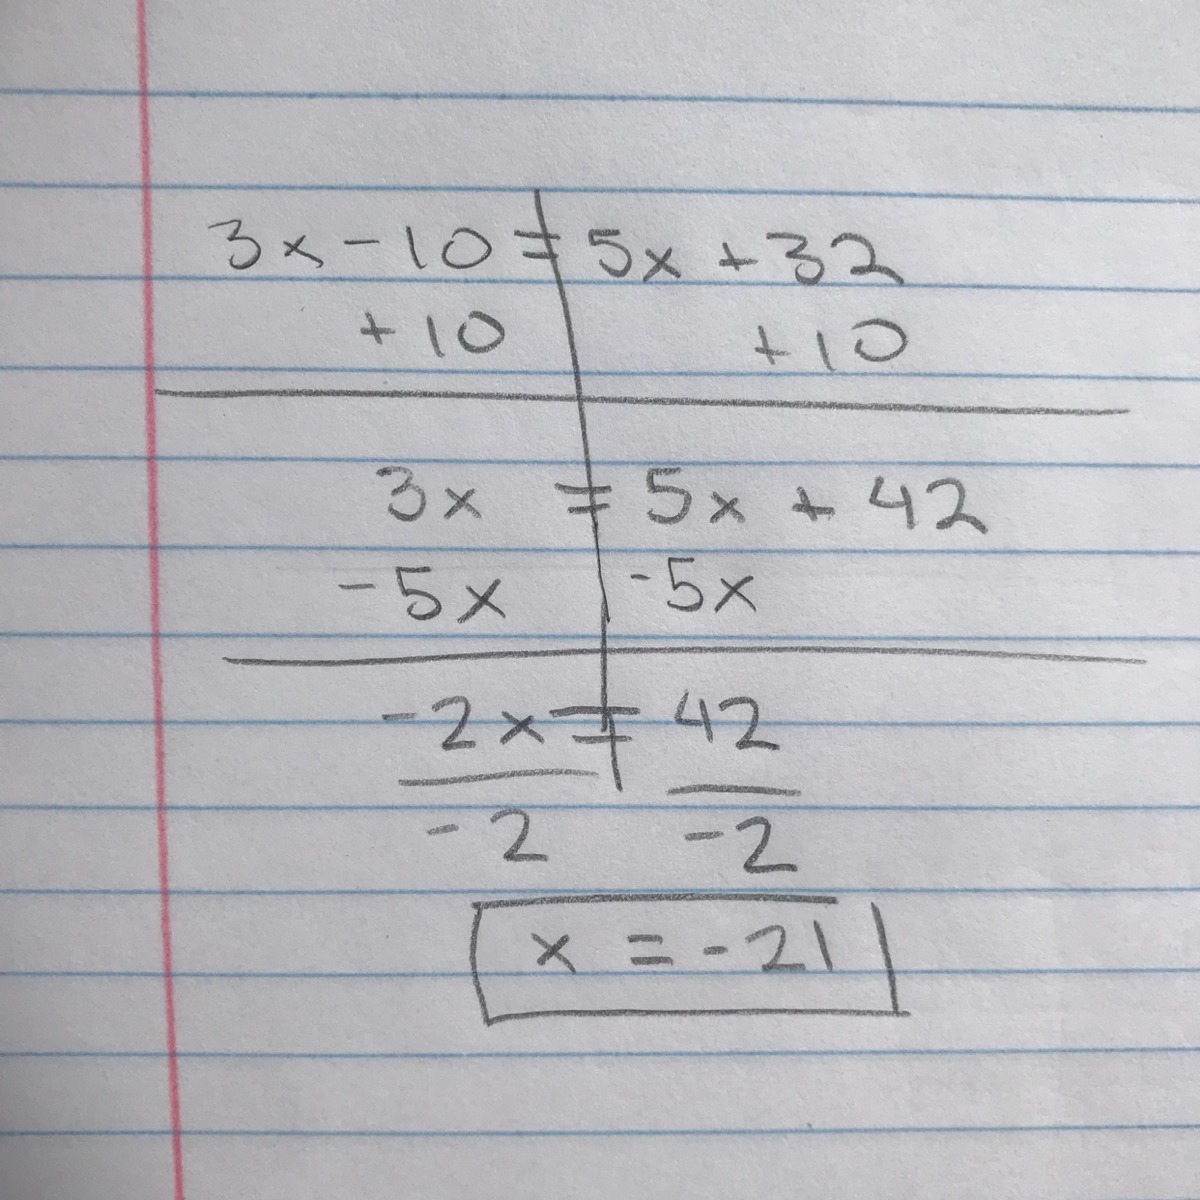 3x - 10 = 5x + 32
+ 10 + 10
3x = 5x + 42
- 5x - 5x
- 2x = 42
- 2 - 2
x = - 21